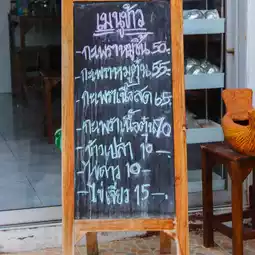 เมนูข้าว
-กะเพราหมูชิ้น 50.-
-กะเพราหมูตุ๋น 55.-
-กะเพราเนื้อสด 65.-
-กะเพราเนื้อตุ๋น 70
-ข้าวเปล่า 10.-
-ไข่ดาว 10.-
-ไข่เจียว 15.-